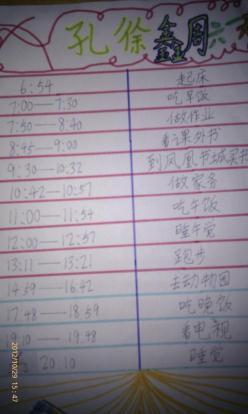 孔徐鑫周六
6:54 起床
7:00——7:30 吃早饭
7:50——8:40 做作业
8:45——9:00 看课外书
9:30——10:32 到凤凰书城买书
10:42——10:57 做家务
11:00——11:54 吃午饭
12:00——12:57 睡午觉
13:11——13:21 跑步
14:59——16:42 去动物园
17:48——18:59 吃晚饭
19:10——19:48 看电视
20:10 睡觉
2012/10/29 15:47